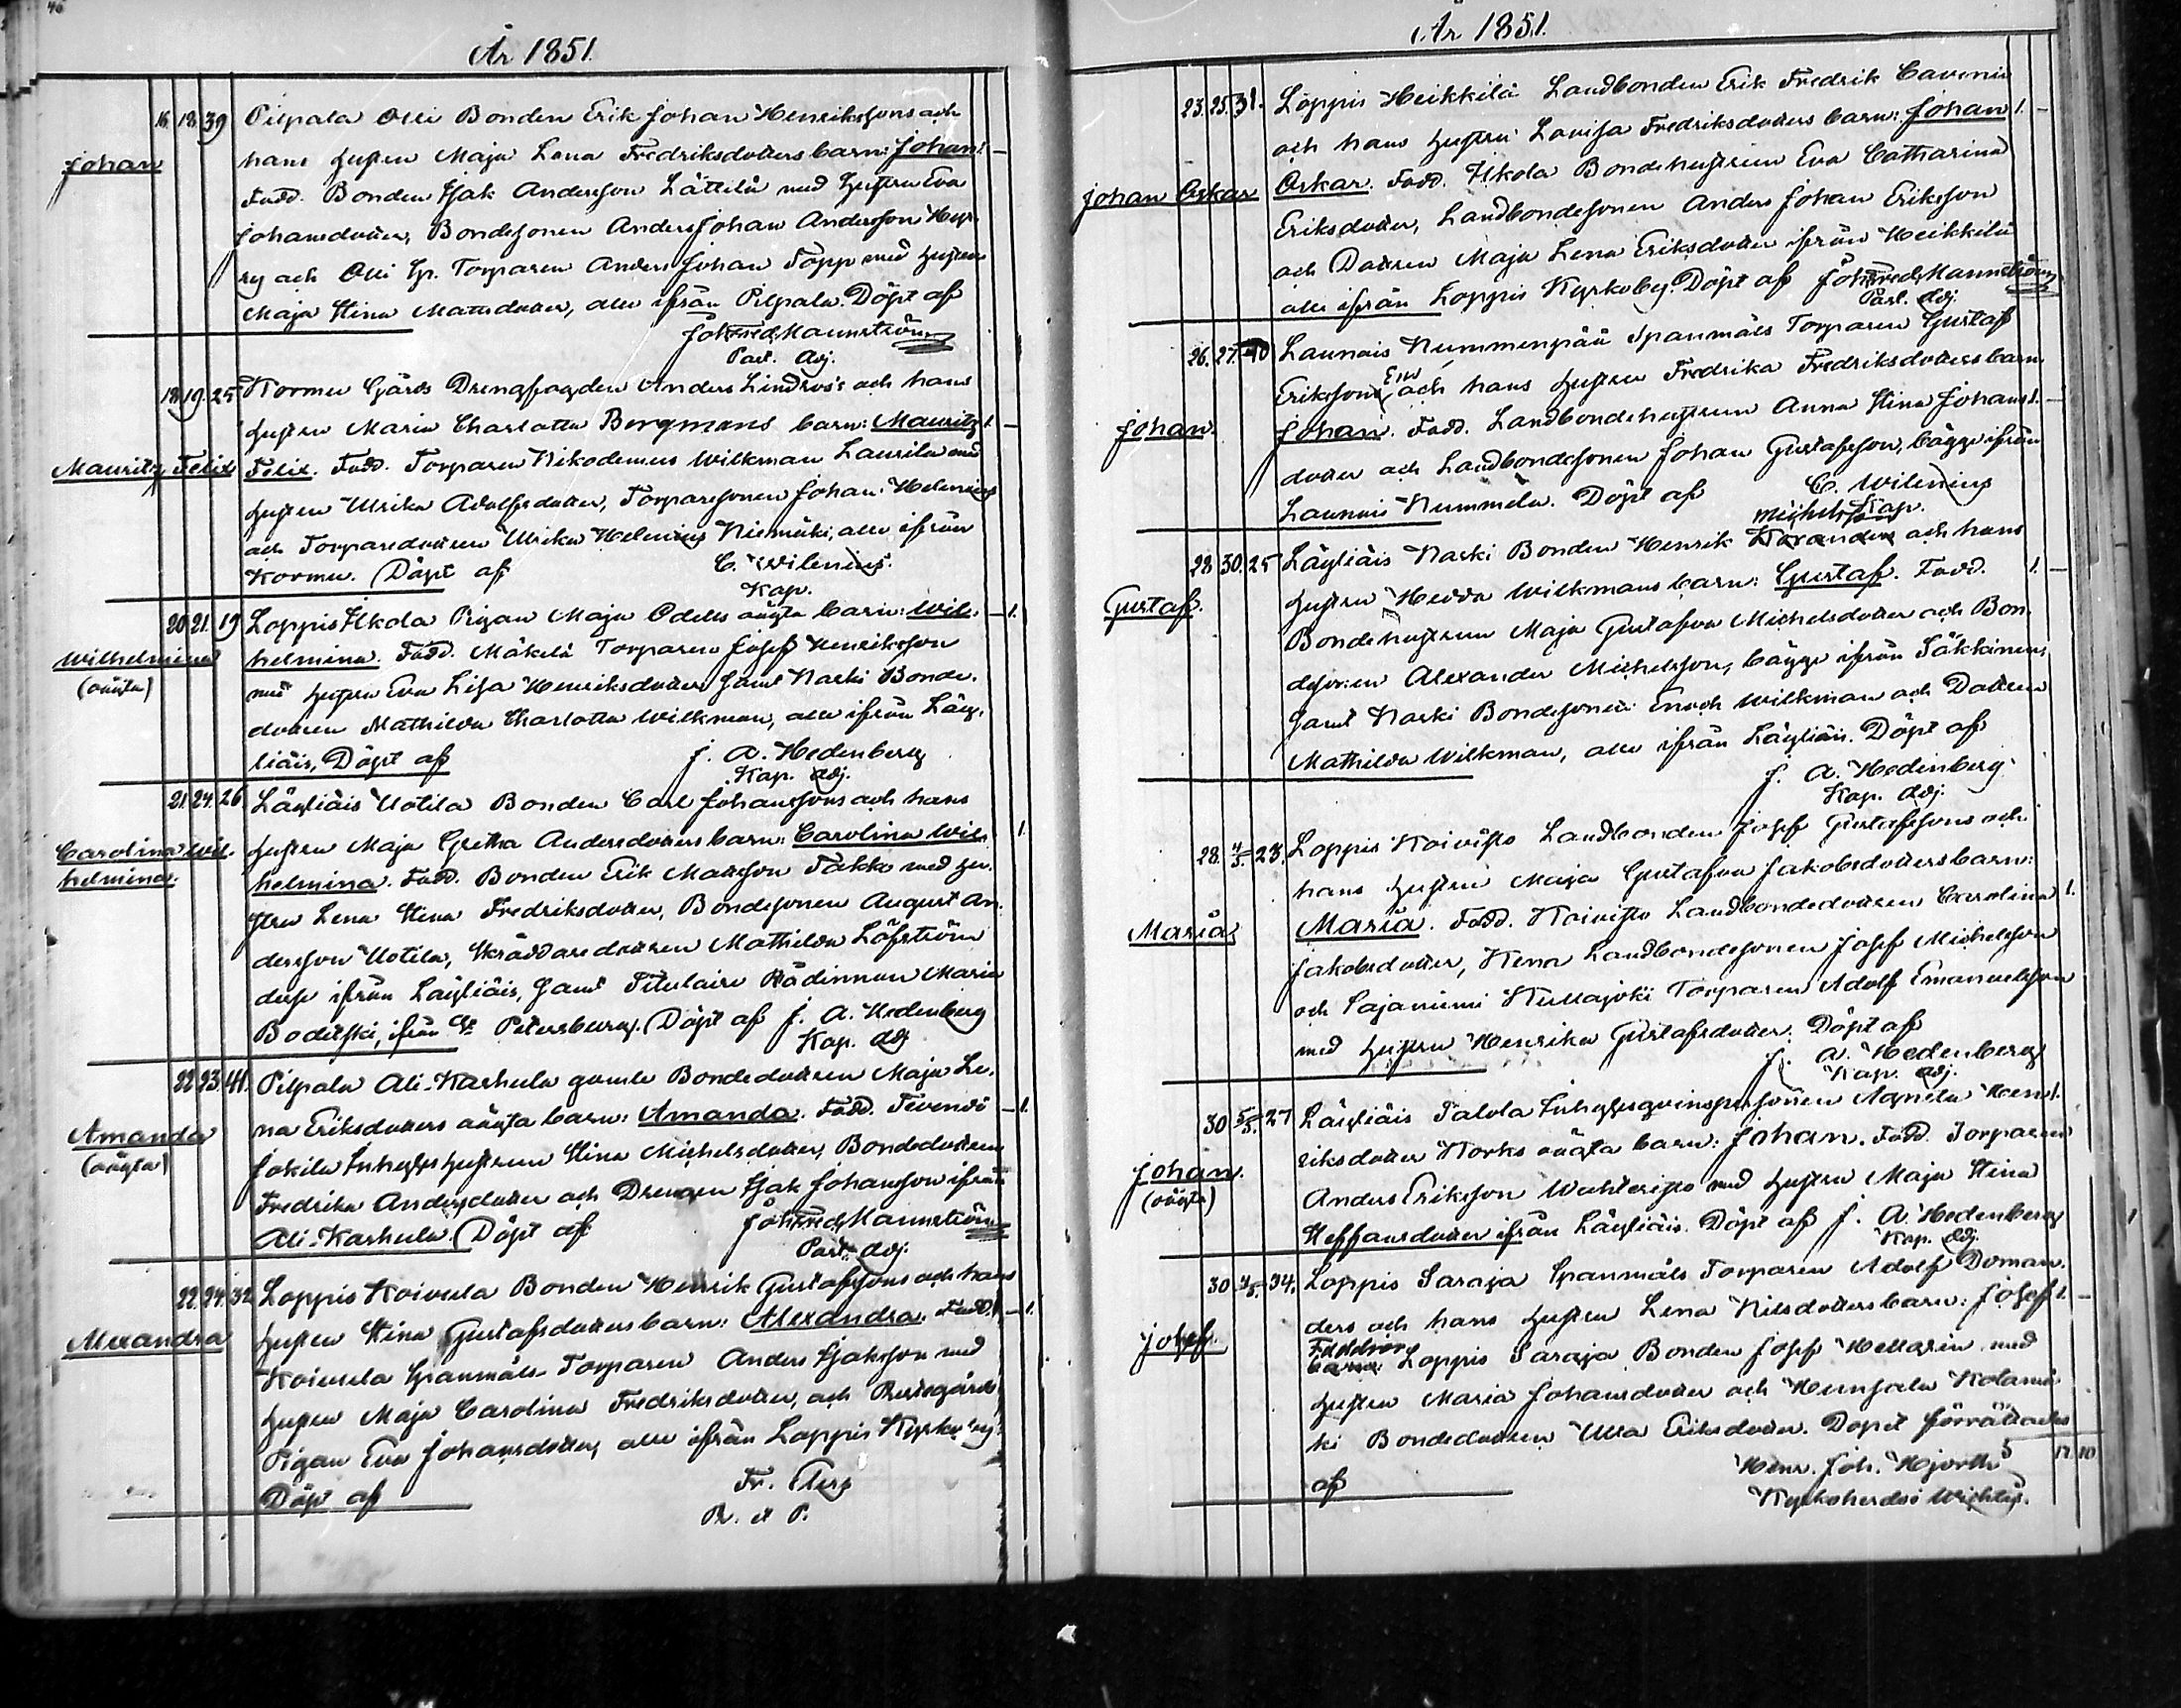 46
År 1851.
Johan
16. 18. 39 Pilpala Olli Bonden Erik Johan Henrikssons och
hans hustru Maja Lena Fredriksdotters barn: Johan. 1. —
Fadd. Bonden Isak Andersson Lättilä med hustru Eva
Johansdotter, Bondesonen Anders Johan Andersson
och Olli Sp. Torparen Anders Johan Topp med hustru
Maja Stina Mattsdotter, alla ifrån Pilpala. Döpt af
Joh. Fred. Mannström
Past. Adj.
Mauritz Felix
18. 19. 25 Kormu Gårds Drengfogden Anders Lindroos's och hans
hustru Maria Charlotta Bergmans barn: Mauritz 1. —
Felix. Fadd. Torparen Nikodemus Wilkman Laurila med
hustru Ulrika Adolfsdotter, Torparesonen Johan Helenius
och Torparedottren Ulrika Helenius Niemäki, alla ifrån
Kormu. Döpt af C. Wilenius.
Kap.
Wilhelmina
(oägta)
20. 21. 19 Loppis Ilkola Pigan Maja Odells oägta barn: Wil- — 1.
helmina. Fadd. Mäkelä Torparen Josef Henriksson
med hustru Eva Lisa Henriksdotter samt Naski Bonde-
dottren Mathilda Charlotta Wilkman, alla ifrån Läy-
liäis, Döpt af J. A. Hedenberg
Kap. Adj.
Carolina Wil-
helmina.
21. 24. 26. Läyliäis Uotila Bonden Carl Johanssons och hans
hustru Maja Gretha Andersdotters barn: Carolina Wil- 1.
helmina. Fadd. Bonden Erik Mattsson Takko med hu-
stru Lena Stina Fredriksdotter, Bondesonen August An-
dersson Uotila, Skräddaredottren Mathilda Löfström
desse ifrån Läyliäis, samt Titulaire Rådinnan Maria
Boditski, ifrån St. Petersburg. Döpt af J. A. Hedenberg
Kap. Adj.
Amanda
(oägta)
22. 23. 41. Pilpala Ali-Karhula gamle Bondedottren Maja Le-
na Eriksdotters oägta barn: Amanda. Fadd. — 1.
Jokila Inhyses hustrun Stina Michelsdotter, Bondedottren
Fredrika Andersdotter och Drengen Isak Johansson ifrån
Ali-Karhula. Döpt af Joh. Fred. Mannström
Past. Adj.
Alexandra
22. 24. 32 Loppis Koivula Bonden Henrik Gustafssons och hans
hustru Stina Gustafsdotters barn: Alexandra. Fadd. — 1.
Koivula Spanmåls-Torparen Anders Isaksson med
hustru Maja Carolina Fredriksdotter, och
Pigan Eva Johansdotter, alla ifrån Loppis Kyrkoby.
Döpt af Fr.
P. et P.
År 1851.
Johan Oskar
23. 25. 31. Loppis Heikkilä Landbonden Erik Fredrik
och hans hustru Lovisa Fredriksdotters barn: Johan 1. —
Oskar. Fadd. Ilkola Bondehustrun Eva Catharina
Eriksdotter, Landbondesonen Anders Johan Eriksson
och Dottren Maja Lena Eriksdotter ifrån Heikkilä
alla ifrån Loppis Kyrkoby. Döpt af Joh. Fred. Mannström
Past. Adj.
Johan.
26. 27. 40 Launois Nummenpää Spanmåls Torparen Gustaf
Erikssons och hans hustru Fredrika Fredriksdotters barn
Johan. Fadd. Landbondehustrun Anna Stina Johans- 1. —
dotter och Landbondesonen Johan Gustafsson, bägge ifrån
Launois Nummela. Döpt af C. Wilenius
Kap.
Gustaf.
28. 30. 25 Läyliäis Naski Bonden Henrik Michelsson och hans
hustru Hedda Wilkmans barn: Gustaf. Fadd. 1. —
Bondehustrun Maja Gustafva Michelsdotter och Bon-
desonen Alexander Michelsson, bägge ifrån
samt Naski Bondesonen Enoch Wilkman och Dottren
Mathilda Wilkman, alla ifrån Läyliäis. Döpt af
J. A. Hedenberg
Kap. Adj.
Maria
28. 4/5. 23. Loppis Koivisto Landbonden Josef Gustafssons och
hans hustru Maja Gustafva Jakobsdotters barn:
Maria. Fadd. Koivisto Landbondedottren Carolina 1.
Jakobsdotter, Landbondesonen Josef Michelsson
och Sajaniemi Kullajoki Torparen Adolf Emanuelsson
med hustru Henrika Gustafsdotter. Döpt af
J. A. Hedenberg
Kap. Adj.
Johan.
(oägta)
30 5/5. 27 Läyliäis Talola Inhysesqvinspersonen Agneta Hen- 1.
riksdotter Korks oägta barn: Johan. Fadd. Torparen
Anders Eriksson Wahteristo med hustru Maja Stina
Steffansdotter ifrån Läyliäis. Döpt af J. A. Hedenberg
Kap. Adj.
Josef.
30 4/5. 34. Loppis Saraja Spanmåls Torparen Adolf Doman-
ders och hans hustru Lena Nilsdotters barn: Josef 1. —
Faddrar: Loppis Saraja Bonden Josef Hellarin med
hustru Maria Johansdotter och
Bondedottren Ulla Eriksdotter. Dopet förrättades
af Henr. Joh. Hjorth 17. 10
Kyrkoherde i Wichtis.